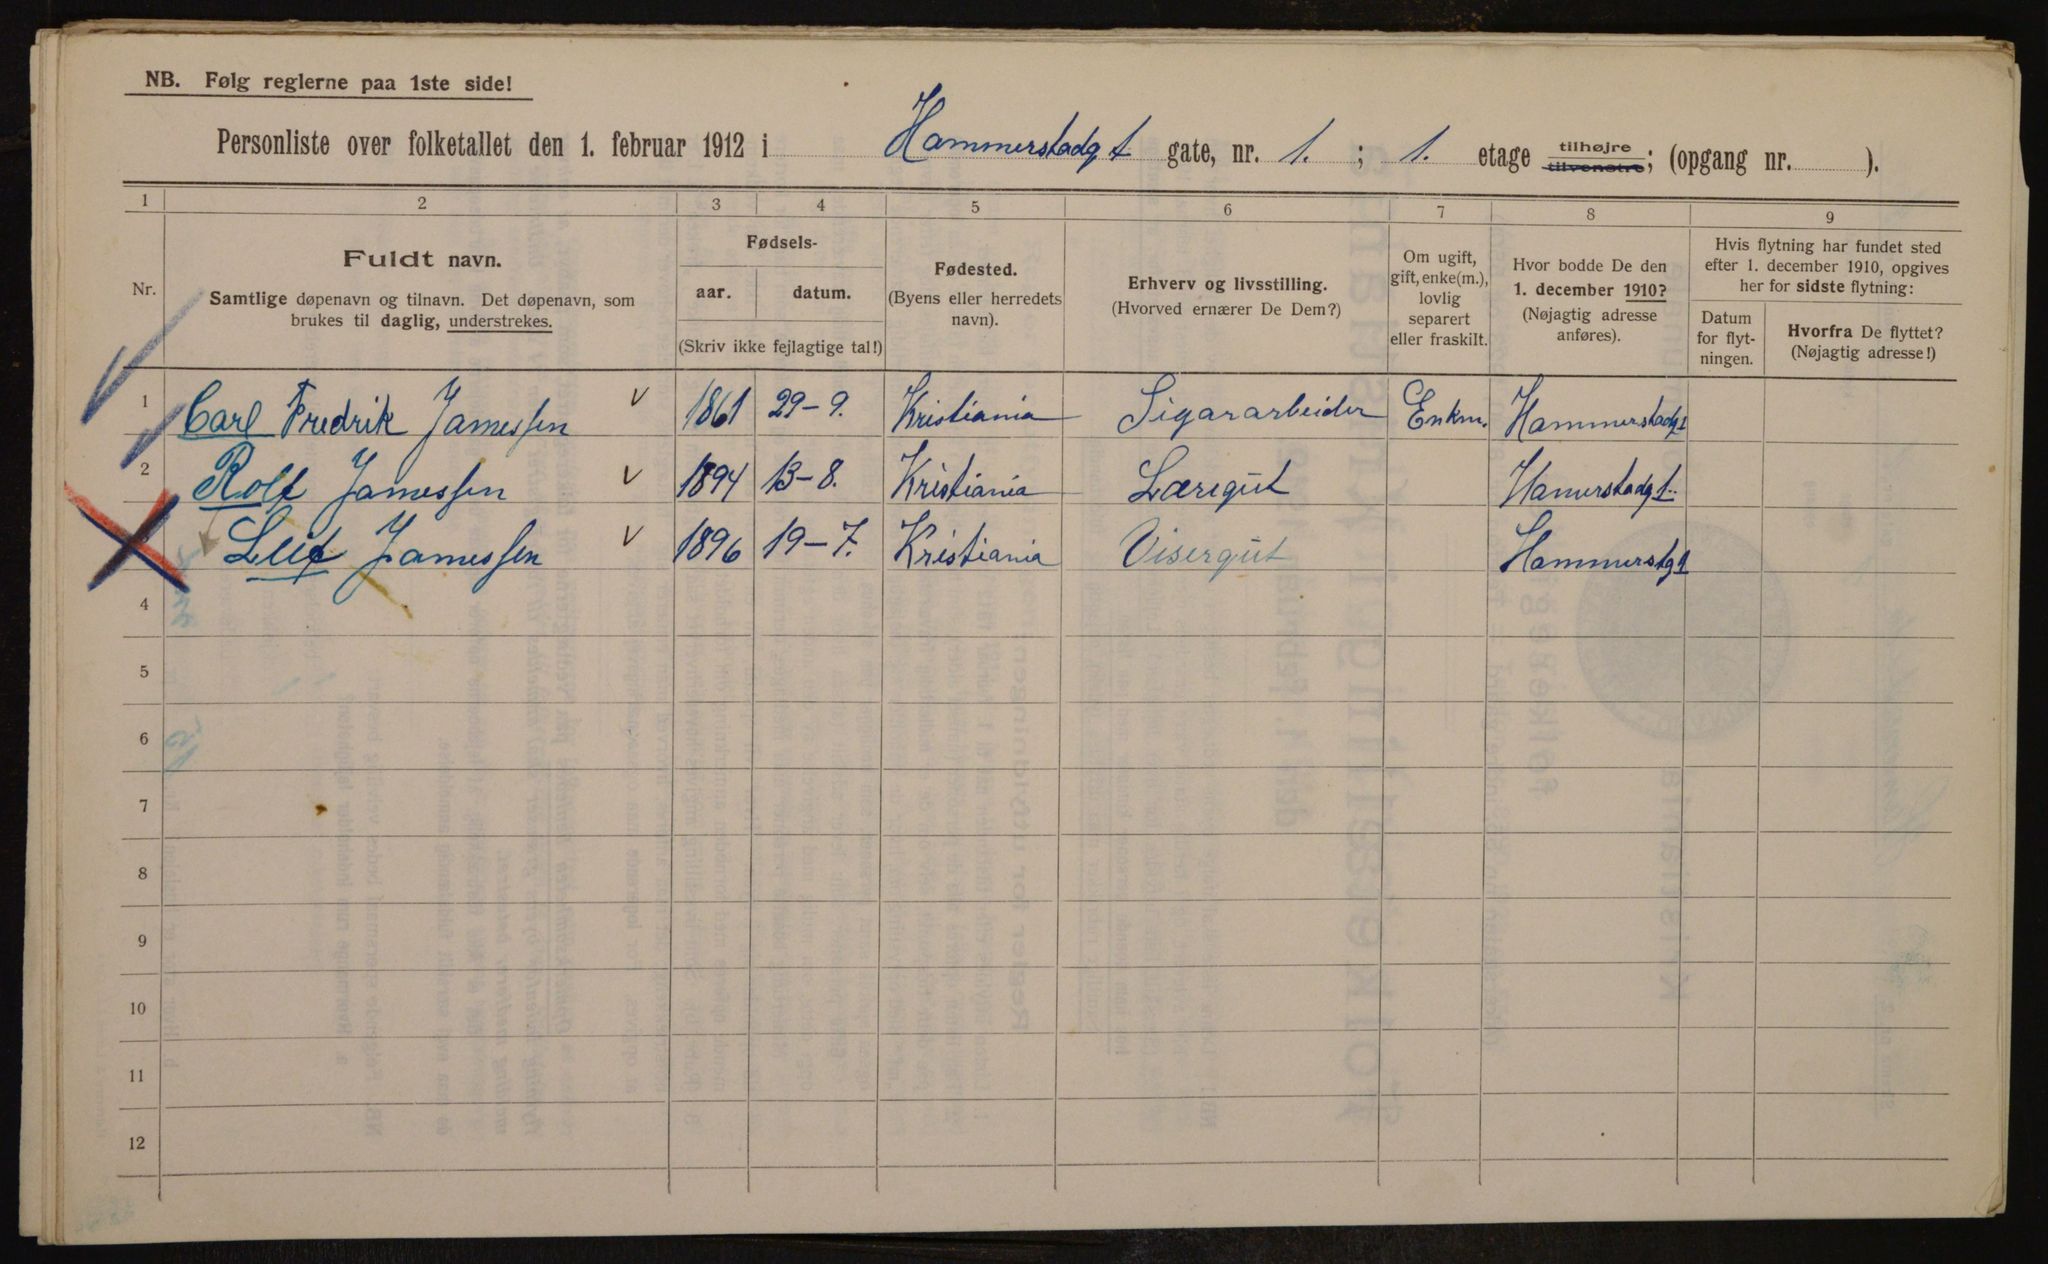 NB. Følg reglerne paa 1ste side!
Personliste over folketallet den 1. februar 1912 i Hammerstadgt gate, nr. 1. ; 1. etage tilhøjre tilvenstre; (opgang nr. ).
1 2 3 4 5 6 7 8 9
Nr.
Fuldt navn.
Samtlige døpenavn og tilnavn. Det døpenavn, som
brukes til daglig, understrekes.
Fødsels-
aar. datum.
(Skriv ikke fejlagtige tal!)
Fødested.
(Byens eller herredets
navn).
Erhverv og livsstilling.
(Hvorved ernærer De Dem?)
Om ugift,
gift, enke(m.),
lovlig
separert
eller fraskilt.
Hvor bodde De den
1. december 1910?
(Nøjagtig adresse
anføres).
Hvis flytning har fundet sted
efter 1. december 1910, opgives
her for sidste flytning:
Datum
for flyt-
ningen.
Hvorfra De flyttet?
(Nøjagtig adresse!)
1 Carl Fredrik Jamessen v 1861 29-9. Kristiania Sigararbeider Enkm. Hammerstadg 1
2 Rolf Jamessen v 1894 13-8. Kristiania Læregut Hamerstadg 1.
Leif Jamessen v 1896 19-7. Kristiania Visergut Hammerstg 1
4
5
6
7
8
9
10
11
12